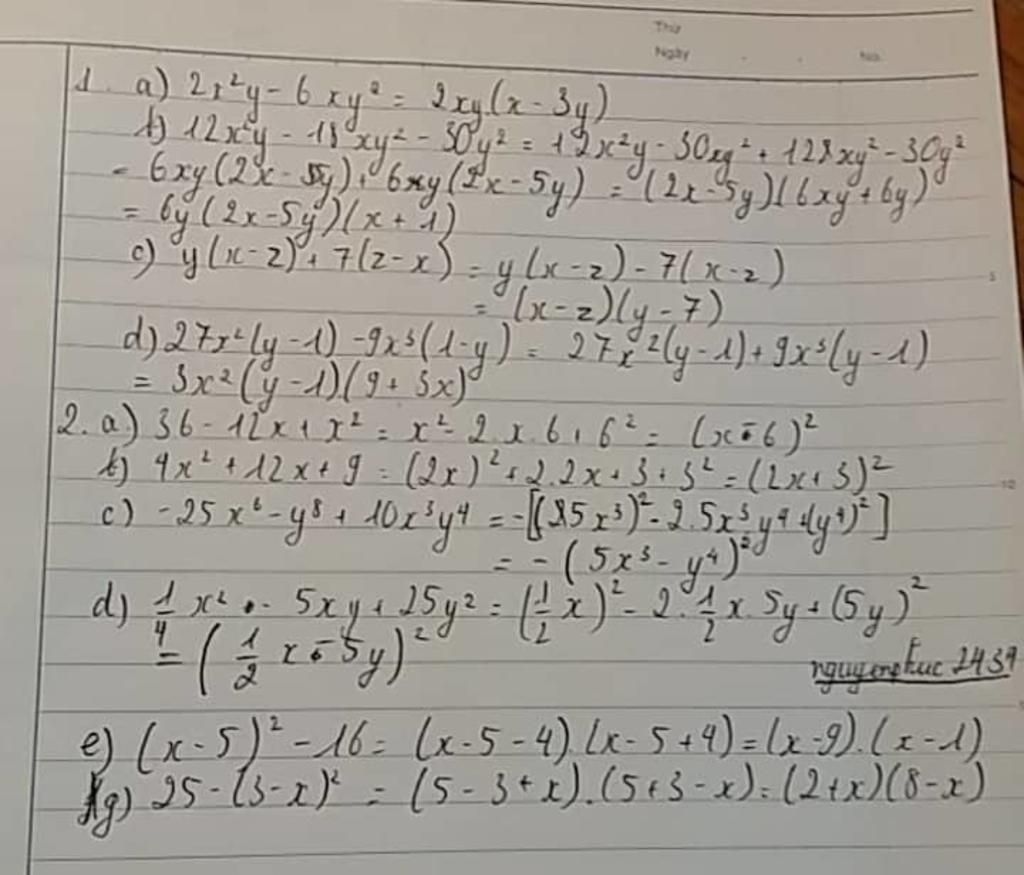 Thứ
Ngày . . No.
1. a) 2x²y - 6xy² = 2xy(x - 3y)
b) 12x²y - 18xy² - 30y² = 12x²y - 30xy² + 128xy² - 30y²
= 6xy(2x - 5y) + 6xy(2x - 5y) = (2x - 5y)(6xy + 6y)
= 6y(2x - 5y)(x + 1)
c) y(x - z) + 7(z - x) = y(x - z) - 7(x - z)
= (x - z)(y - 7)
d) 27x²(y - 1) - 9x³(1 - y) = 27x²(y - 1) + 9x³(y - 1)
= 3x²(y - 1)(9 + 3x)
2. a) 36 - 12x + x² = x² - 2.x.6 + 6² = (x - 6)²
b) 4x² + 12x + 9 = (2x)² + 2.2x + 3 + 3² = (2x + 3)²
c) -25x⁶ - y⁸ + 10x³y⁴ = -[(25x³)² - 2.5x³y⁴ + (y⁴)²]
= -(5x³ - y⁴)²
d) 1/4 x² - 5xy + 25y² = (1/2 x)² - 2. 1/2 x. 5y + (5y)²
= (1/2 x - 5y)²
nguyenphuc 2439
e) (x - 5)² - 16 = (x - 5 - 4).(x - 5 + 4) = (x - 9).(x - 1)
g) 25 - (3 - x)² = (5 - 3 + x).(5 + 3 - x) = (2 + x)(8 - x)
5
10